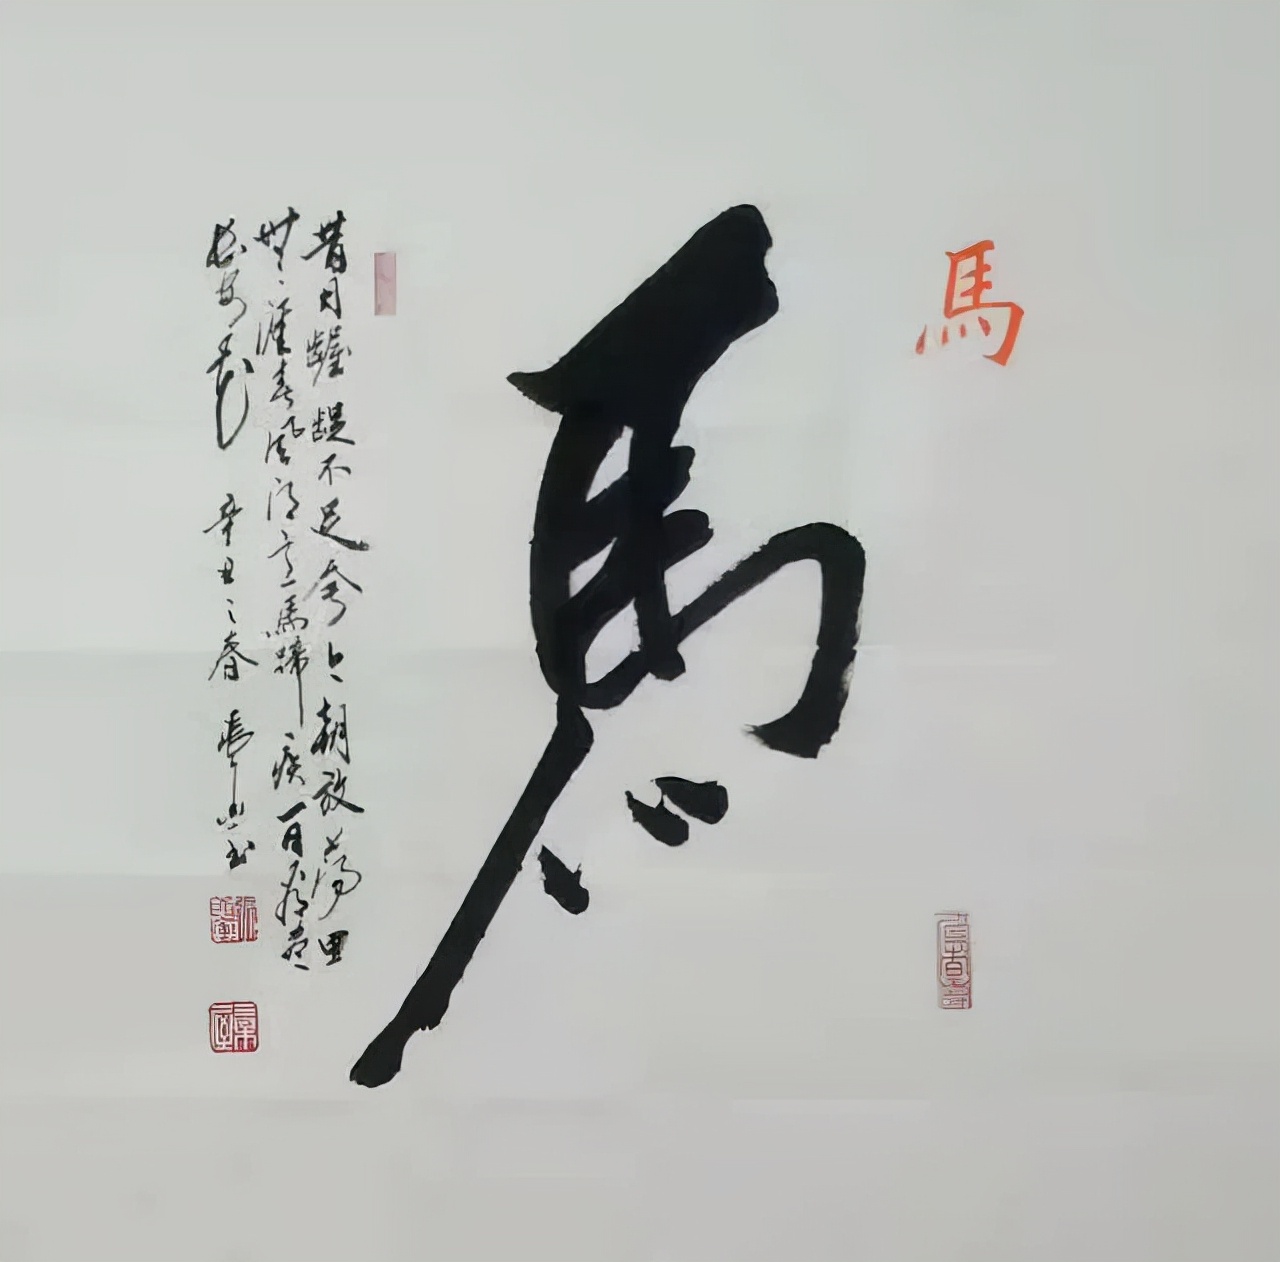 馬
馬
昔日齷齪不足夸今朝放蕩思
無涯春風得意馬蹄疾一日看盡
長安花 辛丑之春 書